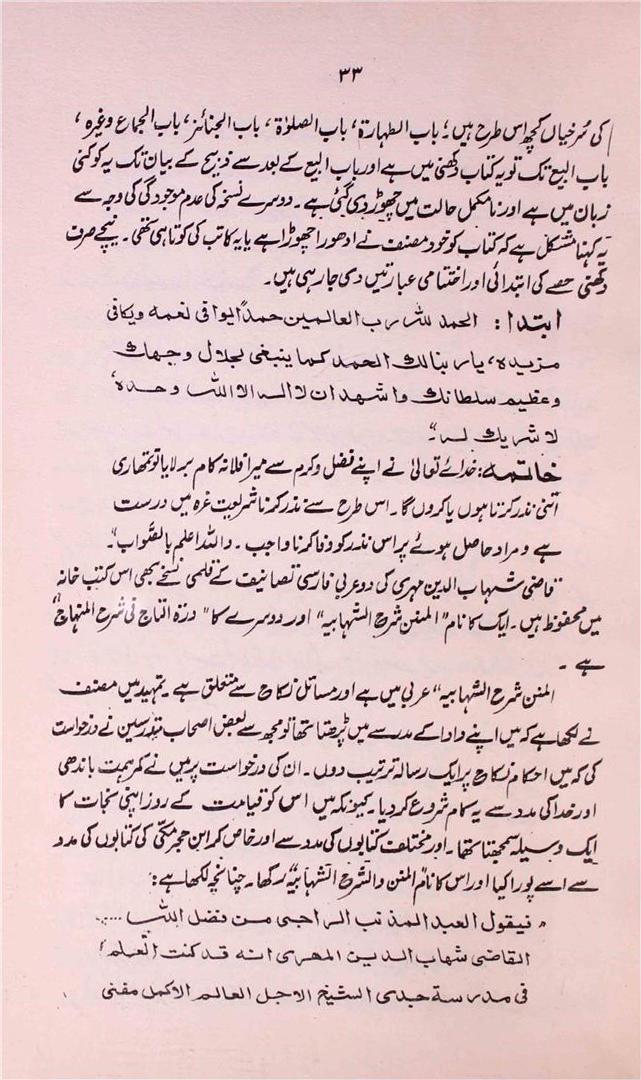 ۳۳
کی سُرخیاں کچھ اس طرح ہیں؛ باب الطہارۃ، باب الصلوٰۃ، باب الجنائز، باب الجماع وغیرہ،
باب البیع تک تو یہ کتاب دکھنی میں ہے اور باب البیع کے بعد سے ذبیح کے بیان تک یہ کوکنی
زبان میں ہے اور نامکمل حالت میں چھوڑ دی گئی ہے۔ دوسرے نسخہ کی عدم موجودگی کی وجہ سے
یہ کہنا مشکل ہے کہ کتاب کو خود مصنف نے ادھورا چھوڑا ہے یا یہ کاتب کی کوتاہی تھی۔ نیچے صرف
دکھنی حصے کی ابتدائی اور اختتامی عبارتیں دی جارہی ہیں۔
ابتدا: الحمد للہ رب العالمین حمداً یوافی نعمہ ویکافی
مزیدہ، یا ربنا لک الحمد کما ینبغی لجلال وجھک
وعظیم سلطانک واشھد ان لا الہ الا اللہ وحدہ،
لا شریک لہ"۔
خاتمہ: خدائے تعالیٰ نے اپنے فضل وکرم سے میرا فلانہ کام بر لایا تو تمھاری
اتنی نذر کرنا ہوں یا کروں گا۔ اس طرح سے نذر کرنا شریعت غرہ میں درست
ہے ومراد حاصل ہوئے پر اس نذر کو وفا کرنا واجب۔ واللہ اعلم بالصّواب"۔
قاضی شہاب الدین مہری کی دو عربی فارسی تصانیف کے قلمی نسخے بھی اس کتب خانہ
میں محفوظ ہیں۔ ایک کا نام "المنن شرح الشہابیہ" اور دوسرے کا "درۃ التاج فی شرح المنہاج"
ہے۔
المنن شرح الشہابیہ" عربی میں ہے اور مسائل نکاح سے متعلق ہے۔ تمہید میں مصنف
نے لکھا ہے کہ میں اپنے دادا کے مدرسے میں پڑھتا تھا تو مجھ سے بعض اصحاب متدرسین نے درخواست
کی کہ میں احکام نکاح پر ایک رسالہ ترتیب دوں۔ ان کی درخواست پر میں نے کمر ہمت باندھی
اور خدا کی مدد سے یہ کام شروع کردیا۔ کیونکہ میں اس کو قیامت کے روز اپنی نجات کا
ایک وسیلہ سمجھتا تھا۔ اور مختلف کتابوں کی مدد سے اور خاص کر ابن حجر مکی کی کتابوں کی مدد
سے اسے پورا کیا اور اس کا نام "المنن والشرح الشہابیہ" رکھا۔ چنانچہ لکھا ہے:
"فیقول العبد المذنب الراجی من فضل اللہ ....
القاضی شہاب الدین المھری انہ قد کنت اتعلم
فی مدرسۃ جدی الشیخ الاجل العالم الاکمل مفتی